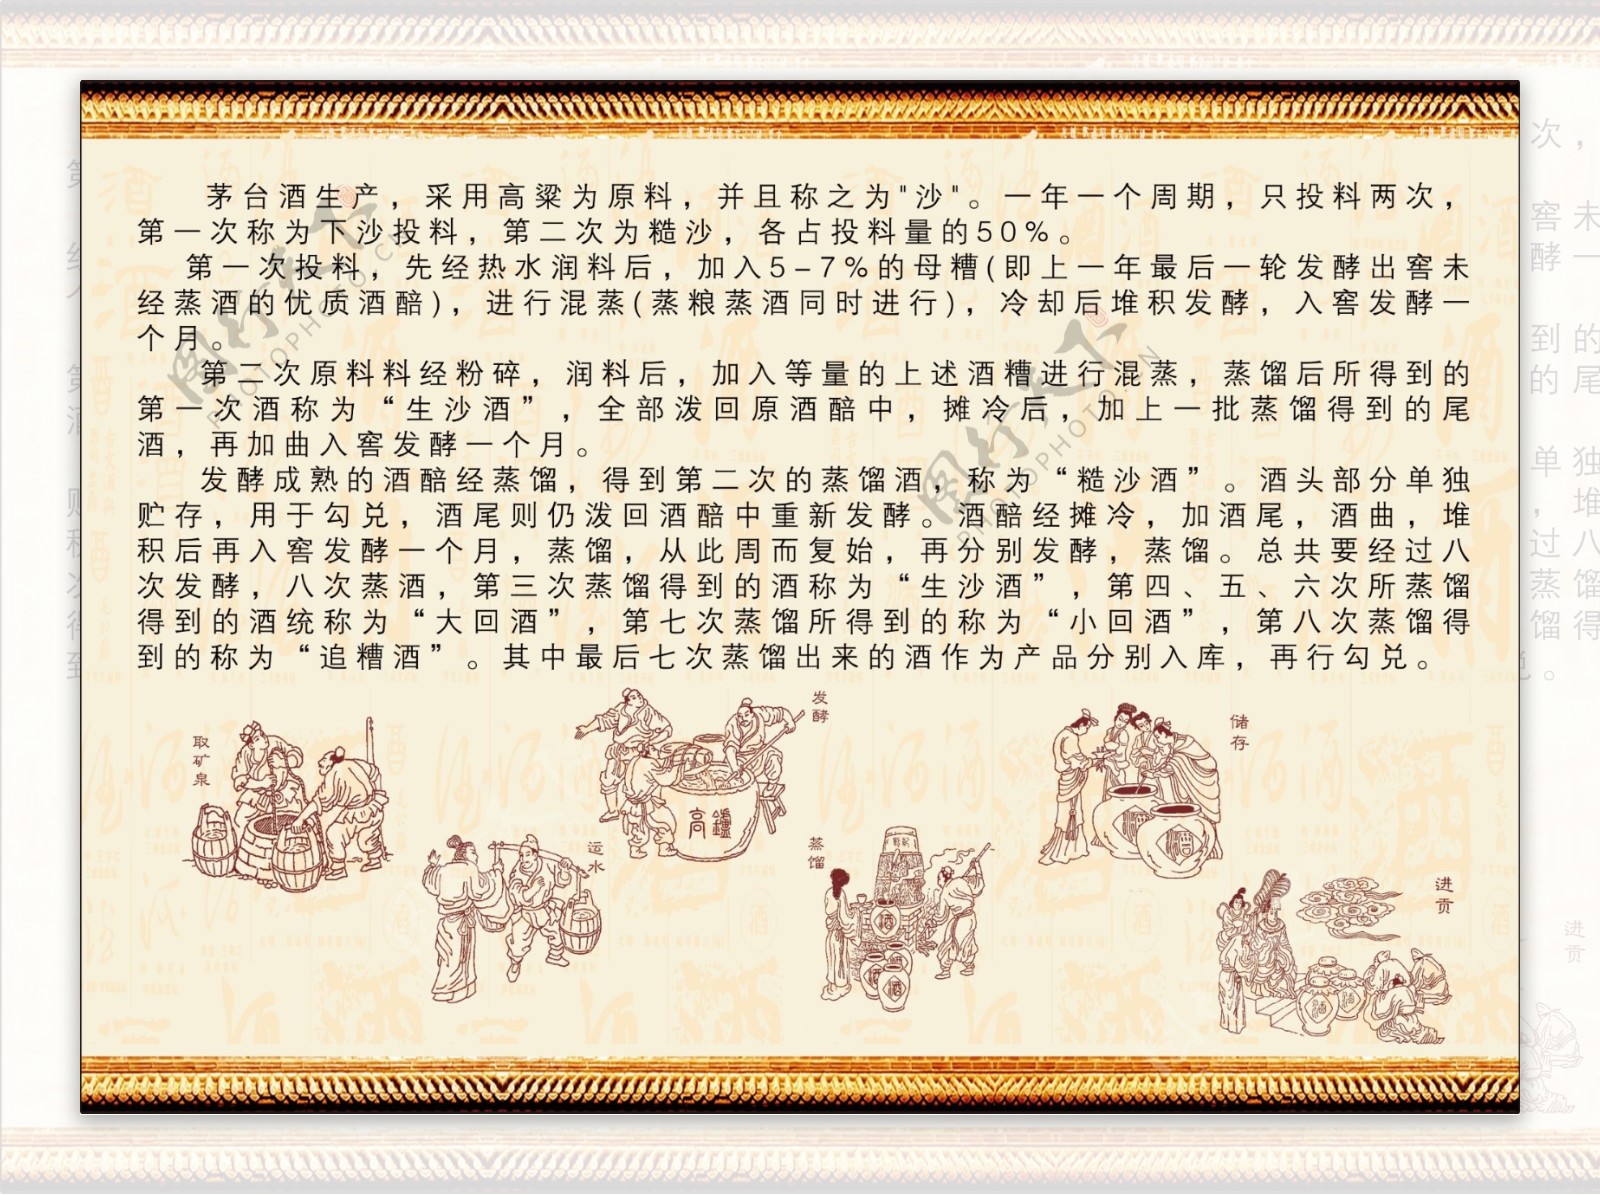 茅台酒生产，采用高粱为原料，并且称之为"沙"。一年一个周期，只投料两次，
第一次称为下沙投料，第二次为糙沙，各占投料量的50%。
第一次投料，先经热水润料后，加入5-7%的母糟(即上一年最后一轮发酵出窖未
经蒸酒的优质酒醅)，进行混蒸(蒸粮蒸酒同时进行)，冷却后堆积发酵，入窖发酵一
个月。
第二次原料料经粉碎，润料后，加入等量的上述酒糟进行混蒸，蒸馏后所得到的
第一次酒称为“生沙酒”，全部泼回原酒醅中，摊冷后，加上一批蒸馏得到的尾
酒，再加曲入窖发酵一个月。
发酵成熟的酒醅经蒸馏，得到第二次的蒸馏酒，称为“糙沙酒”。酒头部分单独
贮存，用于勾兑，酒尾则仍泼回酒醅中重新发酵。酒醅经摊冷，加酒尾，酒曲，堆
积后再入窖发酵一个月，蒸馏，从此周而复始，再分别发酵，蒸馏。总共要经过八
次发酵，八次蒸酒，第三次蒸馏得到的酒称为“生沙酒”，第四、五、六次所蒸馏
得到的酒统称为“大回酒”，第七次蒸馏所得到的称为“小回酒”，第八次蒸馏得
到的称为“追糟酒”。其中最后七次蒸馏出来的酒作为产品分别入库，再行勾兑。
取矿泉
运水
发酵
蒸馏
储存
进贡